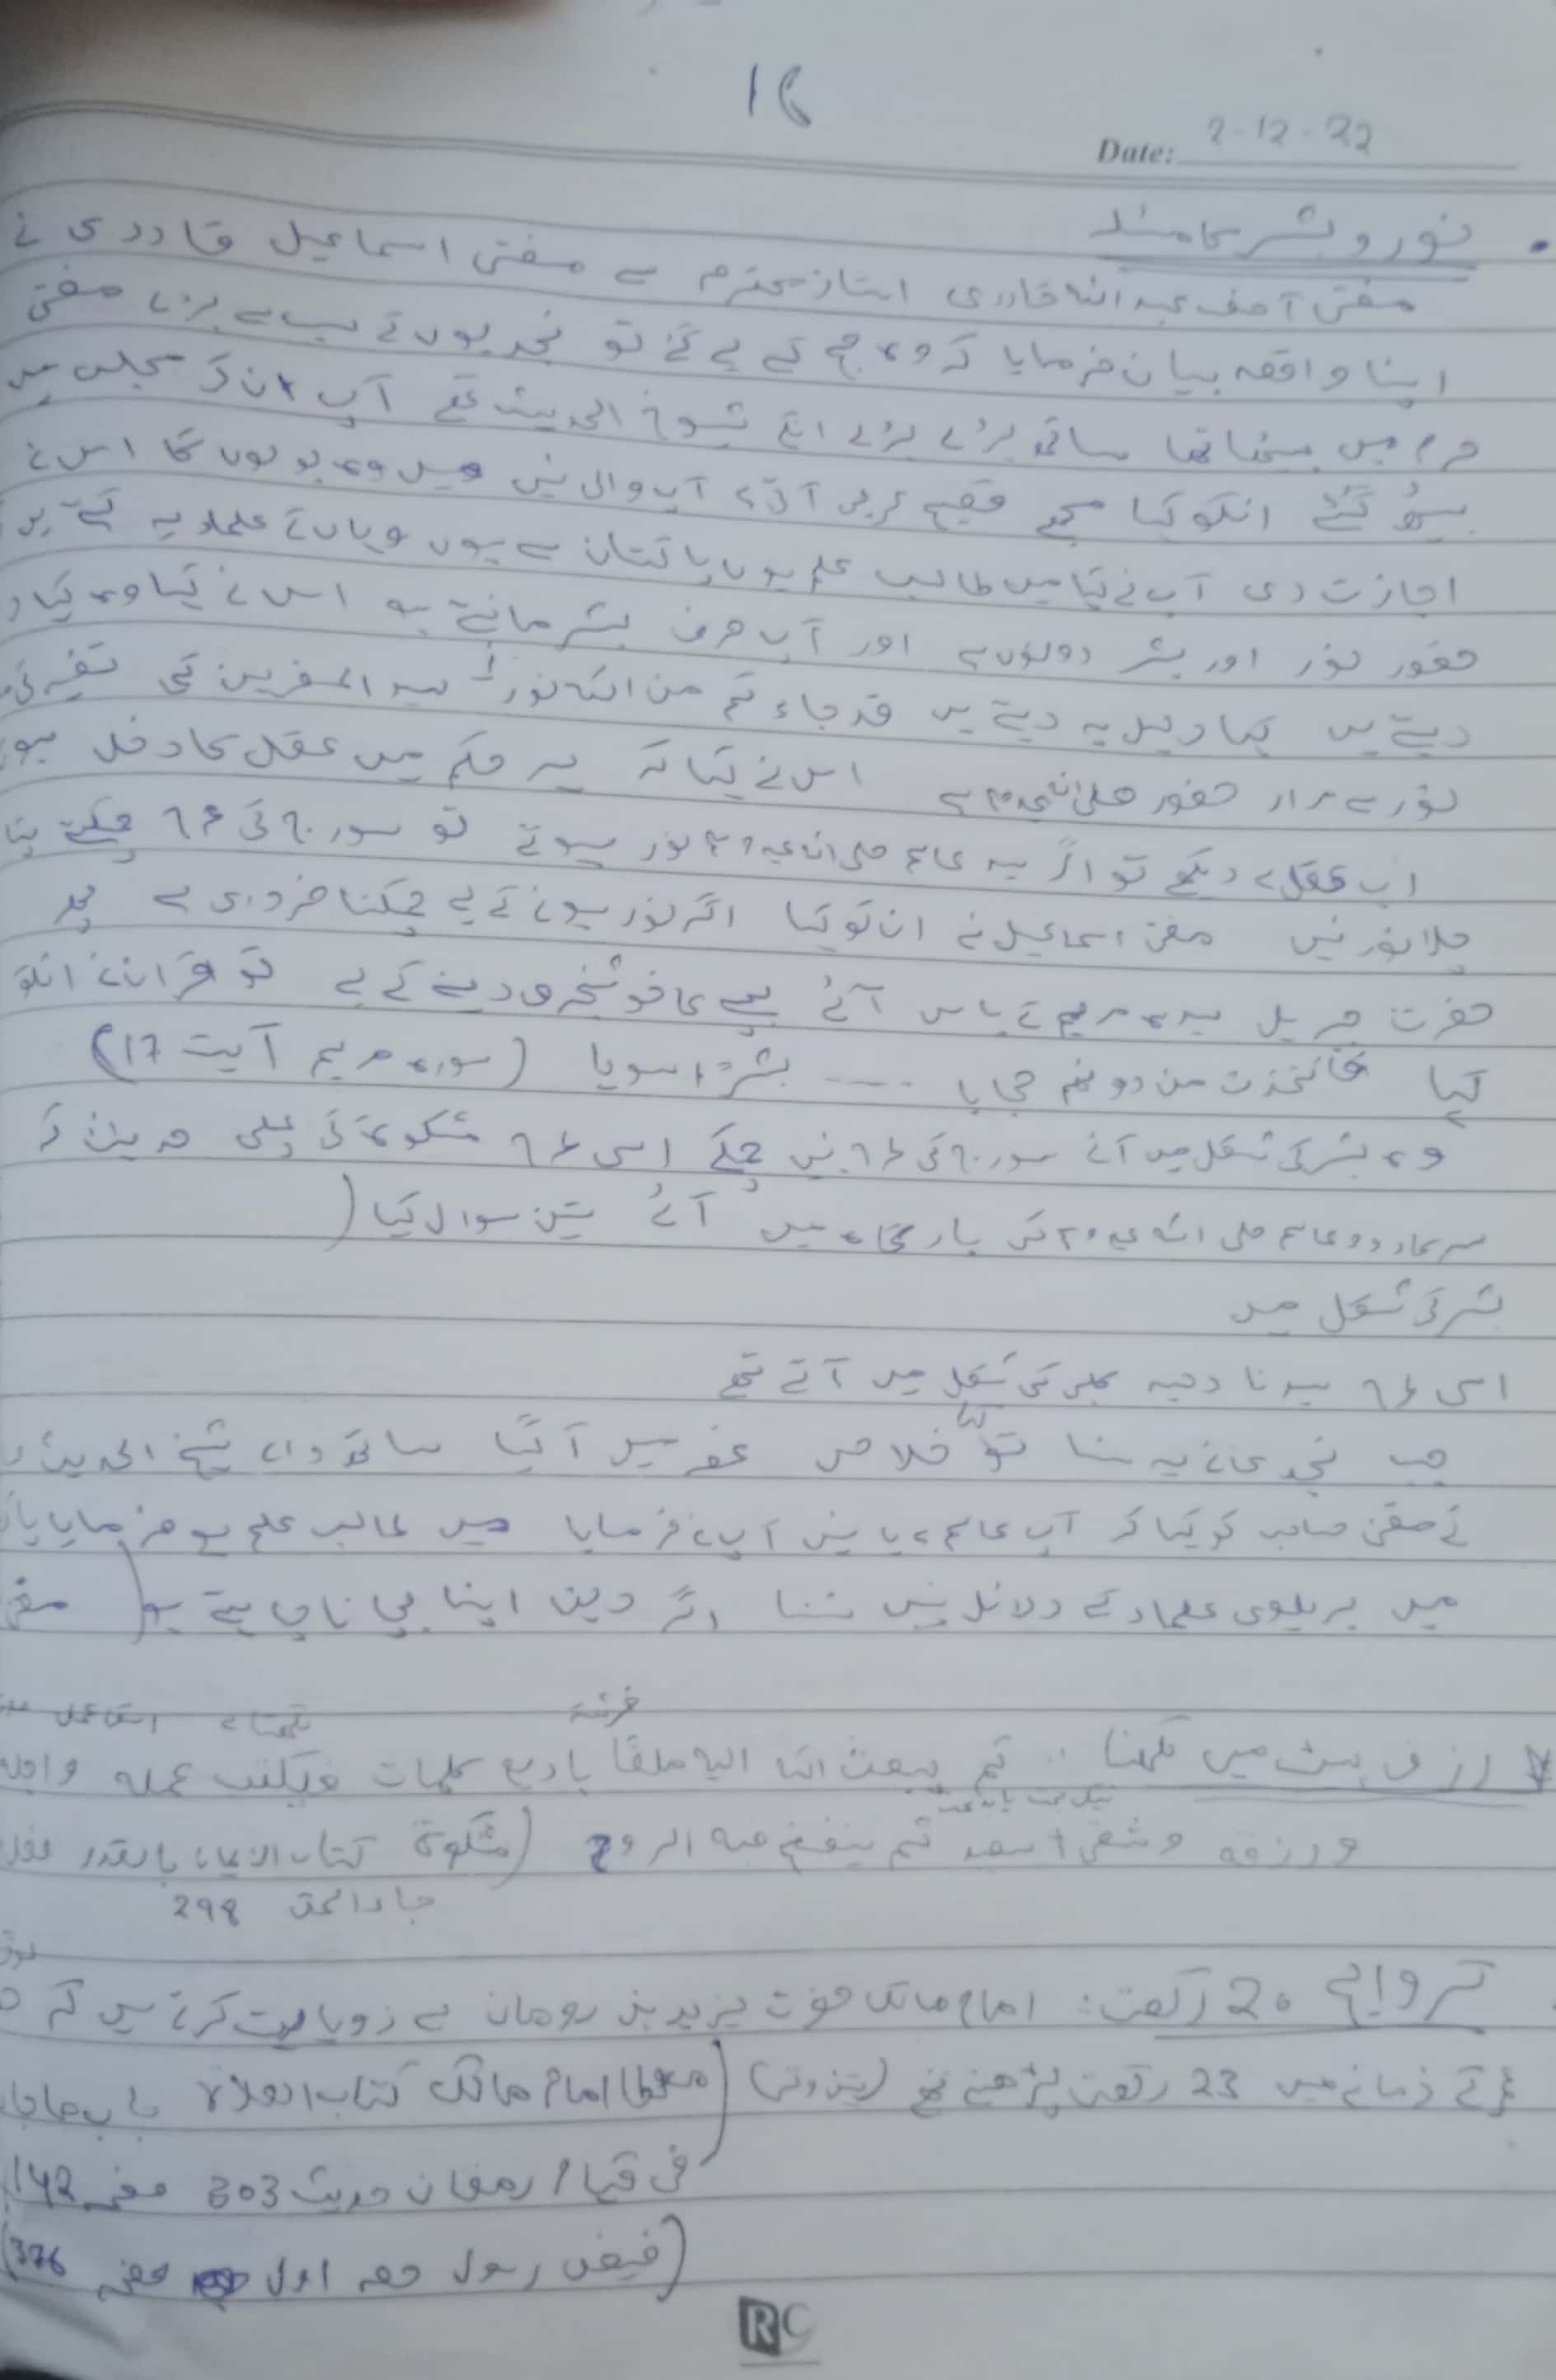 16
Date: 2-12-22
نور و بشر کا مسئلہ
مفتی آصف عبداللہ قادری استاذ محترم ہے مفتی اسماعیل قادری نے
اپنا واقعہ بیان فرمایا کہ وہ حج کے لیے گئے تو نجدیوں کے سب سے بڑے مفتی
حرم میں بیٹھا تھا ساتھ بڑے بڑے انکے شیوخ الحدیث تھے آپ ان کی مجلس میں
بیٹھ گئے انکو کہا مجھے فصیح عربی آتی ہے آپ والی نہیں میں وہ بولوں گا اس نے
اجازت دی آپ نے کہا میں طالب علم ہوں پاکستان سے ہوں وہاں کے علماء یہ کہتے ہیں
حضور نور اور بشر دونوں ہے اور آپ صرف بشر مانتے ہو اس نے کہا وہ کیا
دیتے ہیں کہا دلیل یہ دیتے ہیں قد جاءکم من اللہ نور سید المفسرین کی تفسیر
نور سے مراد حضور صلی اللہ علیہ وسلم ہے اس نے کہا کہ یہ حکم میں عقل کا دخل ہو
اب عقل سے دیکھے تو اگر یہ عالم صلی اللہ علیہ وسلم نور ہوتے تو سورج کی طرح چمکتے پتا
چلا نور نہیں مفتی اسماعیل نے ان کو کہا اگر نور ہونے کے لیے چمکنا ضروری ہے پھر
حضرت جبریل سیدہ مریم کے پاس آئے بیٹے کا خوشخبری دینے کے لیے تو قرآن نے انکو
کہا فاتخذت من دونھم حجابا ---- بشرا سویا (سورہ مریم آیت 17)
وہ بشر کی شکل میں آئے سورج کی طرح نہیں چمکے اسی طرح مشکوۃ کی پہلی حدیث کہ
سرکار دو عالم صلی اللہ علیہ وسلم کی بارگاہ میں آئے تین سوال کیا (
بشر کی شکل میں
اسی طرح سیدنا دحیہ کلبی کی شکل میں آتے تھے
جب نجدی نے یہ سنا تو خلاص غصہ میں آگیا ساتھ والے شیخ الحدیث
نے مفتی صاحب کو کہا کہ آپ عالم ہے یا نہیں آپ نے فرمایا میں طالب علم ہو فرمایا
میں بریلوی علماء کے دلائل نہیں سننا اگر دین اپنا بچانا چاہتے ہو ( مفتی
فرشتہ لکھتا ہے
رزق پیٹ میں لکھنا :: ثم یبعث اللہ الیہ ملکا باربع کلمات فیکتب عملہ واجلہ
ورزقہ وشقی او سعید ثم ینفخ فیہ الروح (مشکوۃ کتاب الایمان باب القدر فصل
جاء الحق 298
تراویح 20 رکعت: امام مالک حضرت یزید بن رومان سے روایت کرتے ہیں کہ
عمر کے زمانے میں 23 رکعت پڑھتے تھے (تین وتر) (موطا امام مالک کتاب الصلاۃ باب ماجاء
فی قیام رمضان حدیث 303 صفحہ 142
(فیض رسول حصہ اول صفحہ 376)
RC